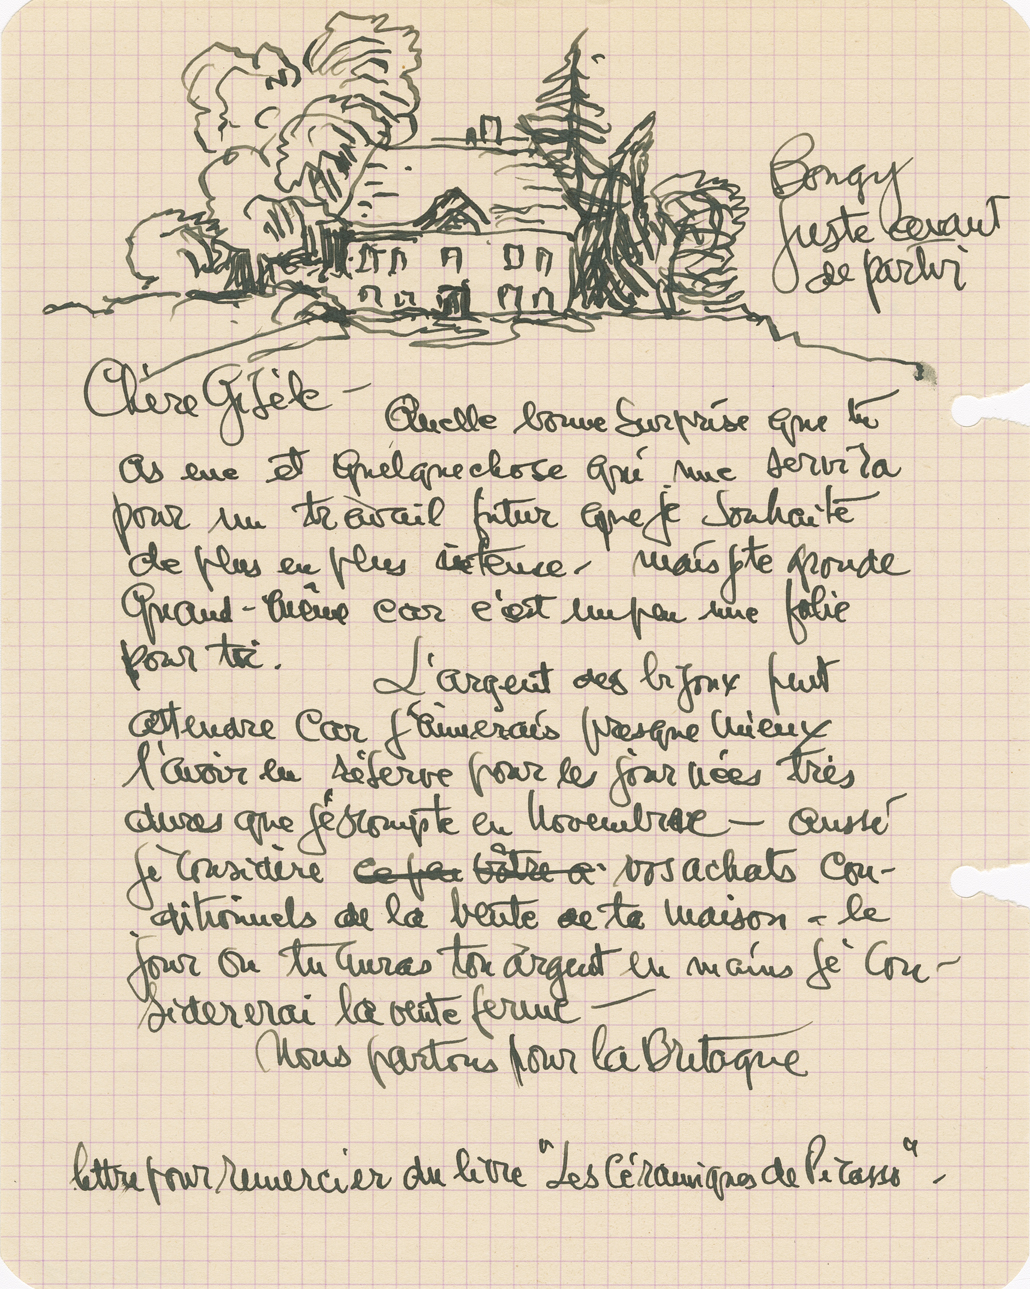 Bongy
juste avant
de partir
Chère Gisèle —
Quelle bonne surprise que tu
as eue et quelque chose qui me servira
pour un travail futur que je souhaite
de plus en plus intense - mais je te gronde
quand-même car c'est un peu une folie
pour toi.
L'argent des bijoux peut
attendre car j'aimerais presque mieux
l'avoir en réserve pour les journées très
dures que j'escompte en Novembre — aussi
je considère ce par vos achats con-
ditionnels de la vente de ta maison - le
jour où tu auras ton argent en mains je con-
sidererai la vente ferme —
Nous partons pour la Bretagne
lettre pour remercier du livre "Les Céramiques de Picasso" -